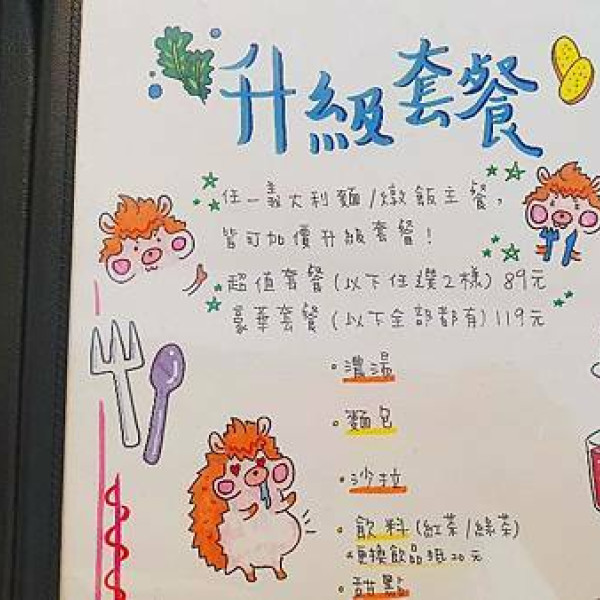 升級套餐
任一義大利麵/燉飯主餐,
皆可加價升級套餐!
超值套餐(以下任選2樣)89元
豪華套餐(以下全部都有)119元
。濃湯
。麵包
。沙拉
。飲料(紅茶/綠茶)
*更換飲品抵20元
。甜點